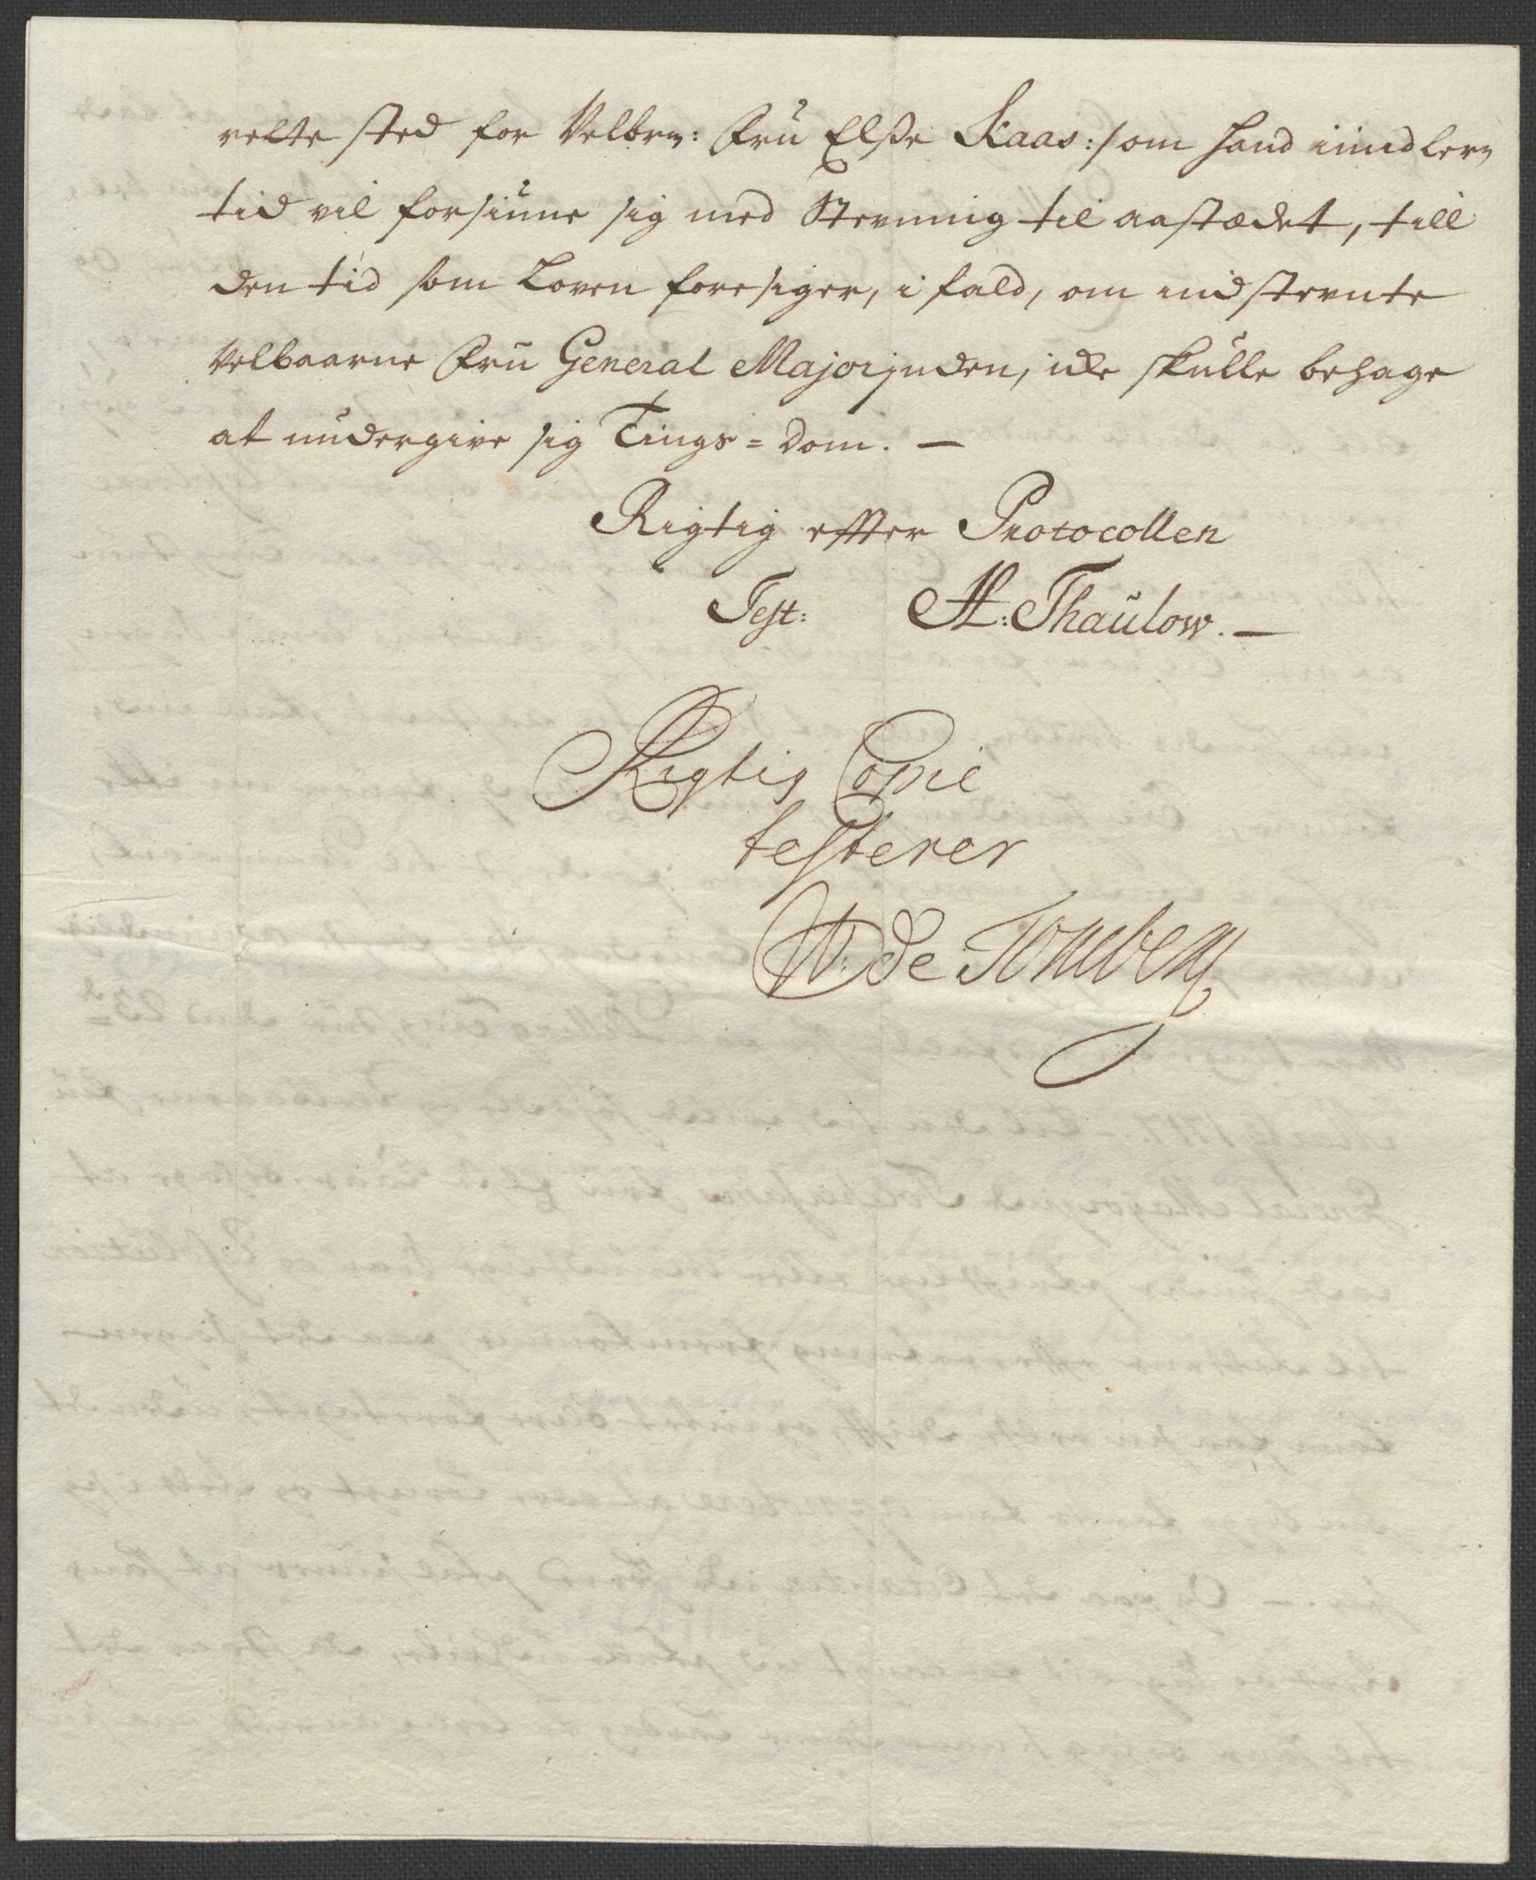 rette sted for Velbrn: Fru Elsse Kaas: som hand imidlern
tid vil forsiune sig med Stevning til aastædet, till
den tid som Loven foresiger, i fald, om indstevnte
Velbaarne Fru General Majorinden, icke skulle behage
at undergive sig Tings= Dom. —
Rigtig effter Protocollen
Test: H: Thaulow. —
Rigtig Copie
testerer
W: de Tonsberg